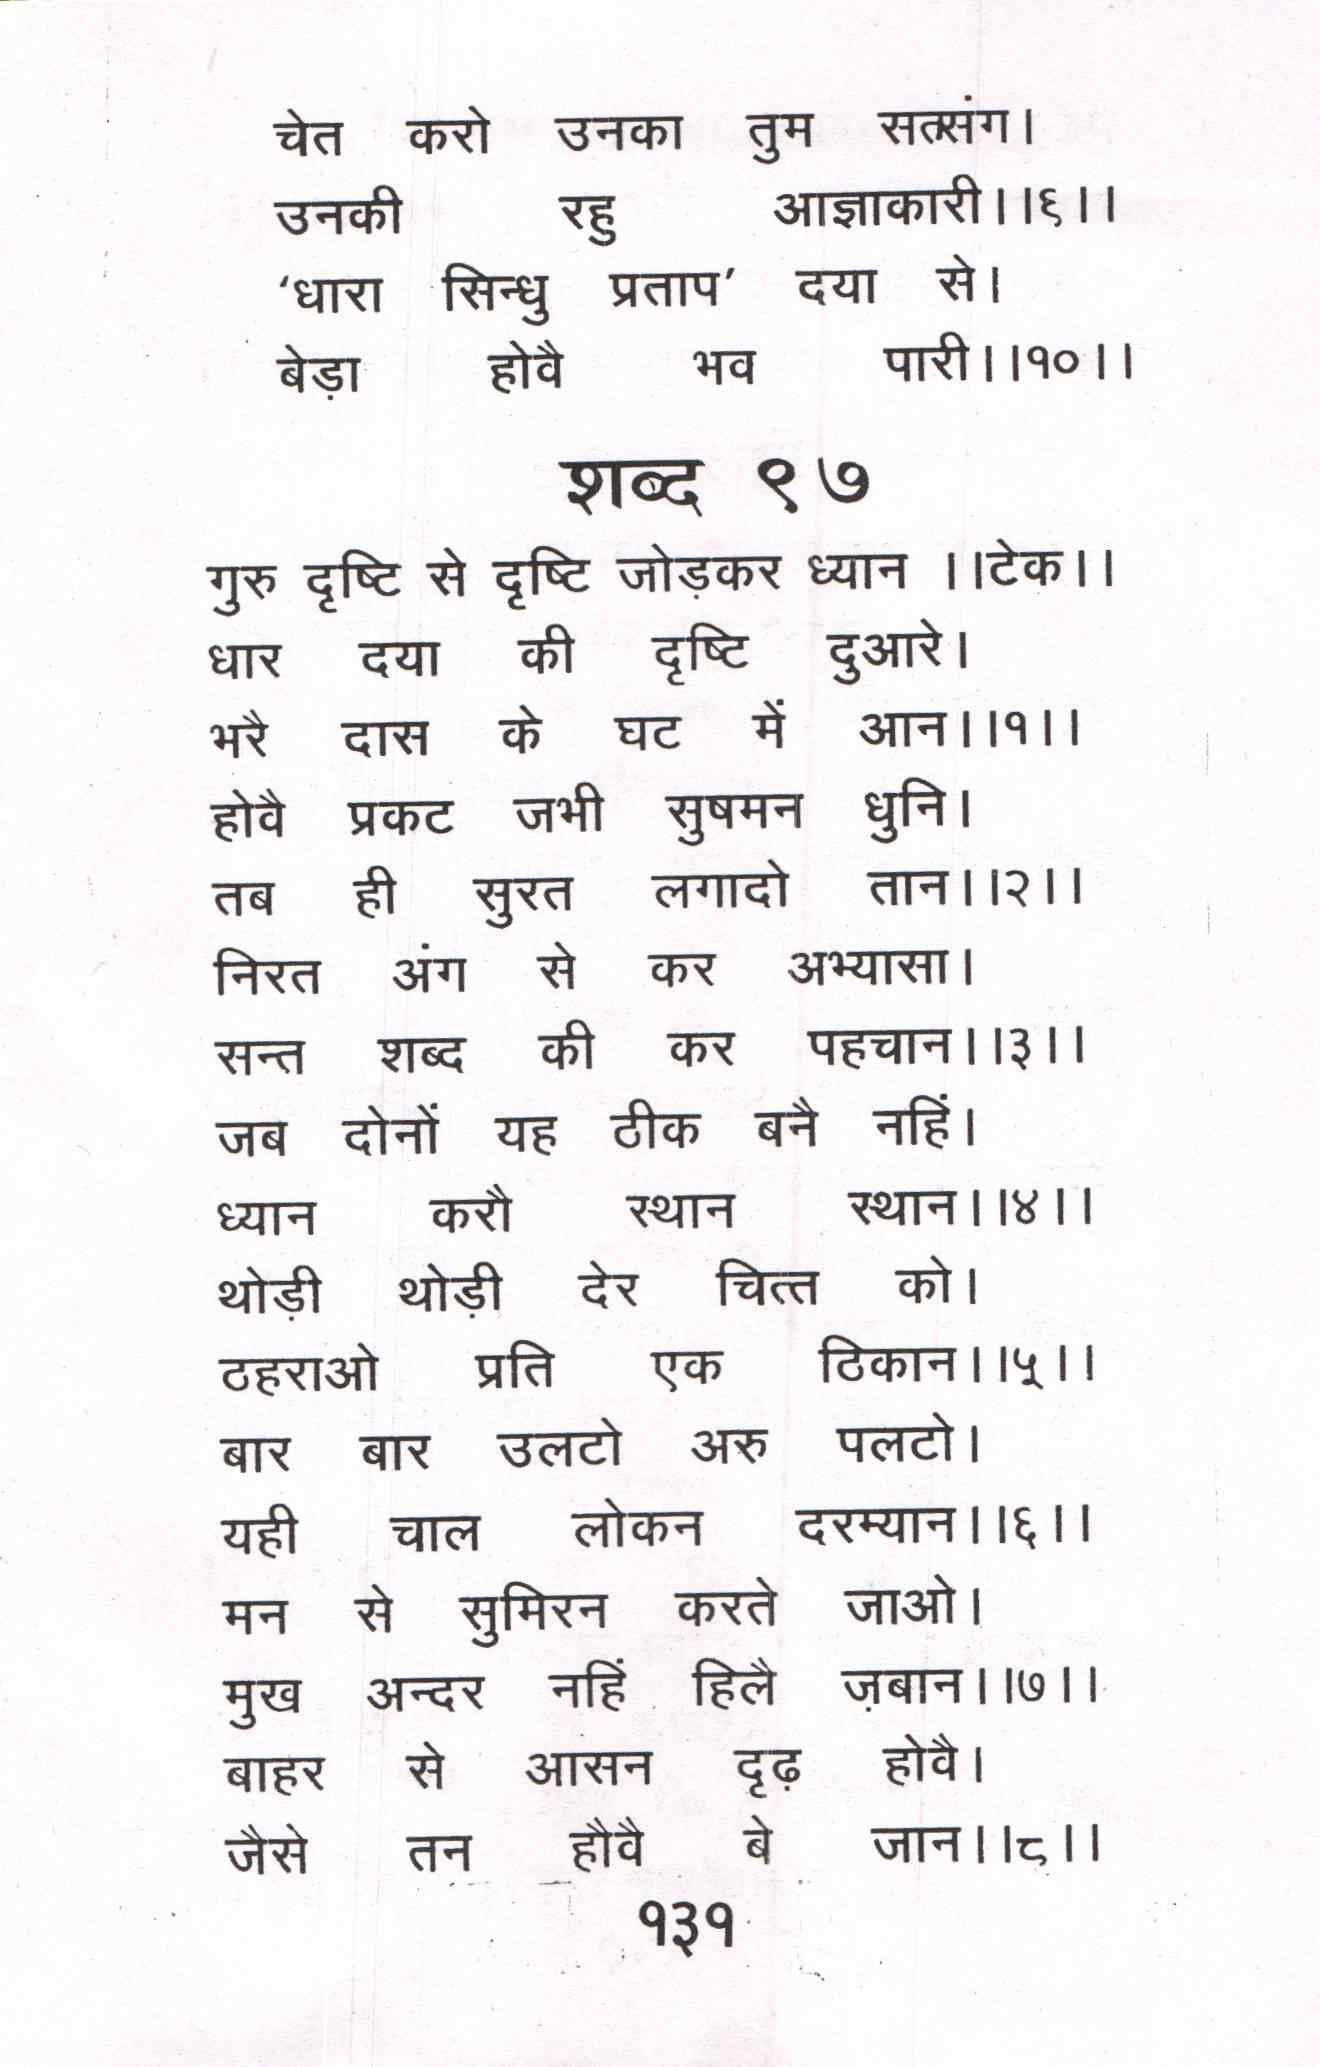 चेत करो उनका तुम सत्संग।
उनकी रहु आज्ञाकारी।।६।।
‘धारा सिन्धु प्रताप’ दया से।
बेड़ा होवै भव पारी।।१०।।
शब्द ९७
गुरु दृष्टि से दृष्टि जोड़कर ध्यान ।।टेक।।
धार दया की दृष्टि दुआरे।
भरै दास के घट में आन।।१।।
होवै प्रकट जभी सुषमन धुनि।
तब ही सुरत लगादो तान।।२।।
निरत अंग से कर अभ्यासा।
सन्त शब्द की कर पहचान।।३।।
जब दोनों यह ठीक बनै नहिं।
ध्यान करौ स्थान स्थान।।४।।
थोड़ी थोड़ी देर चित्त को।
ठहराओ प्रति एक ठिकान।।५।।
बार बार उलटो अरु पलटो।
यही चाल लोकन दरम्यान।।६।।
मन से सुमिरन करते जाओ।
मुख अन्दर नहिं हिलै ज़बान।।७।।
बाहर से आसन दृढ़ होवै।
जैसे तन हौवै बे जान।।८।।
१३१